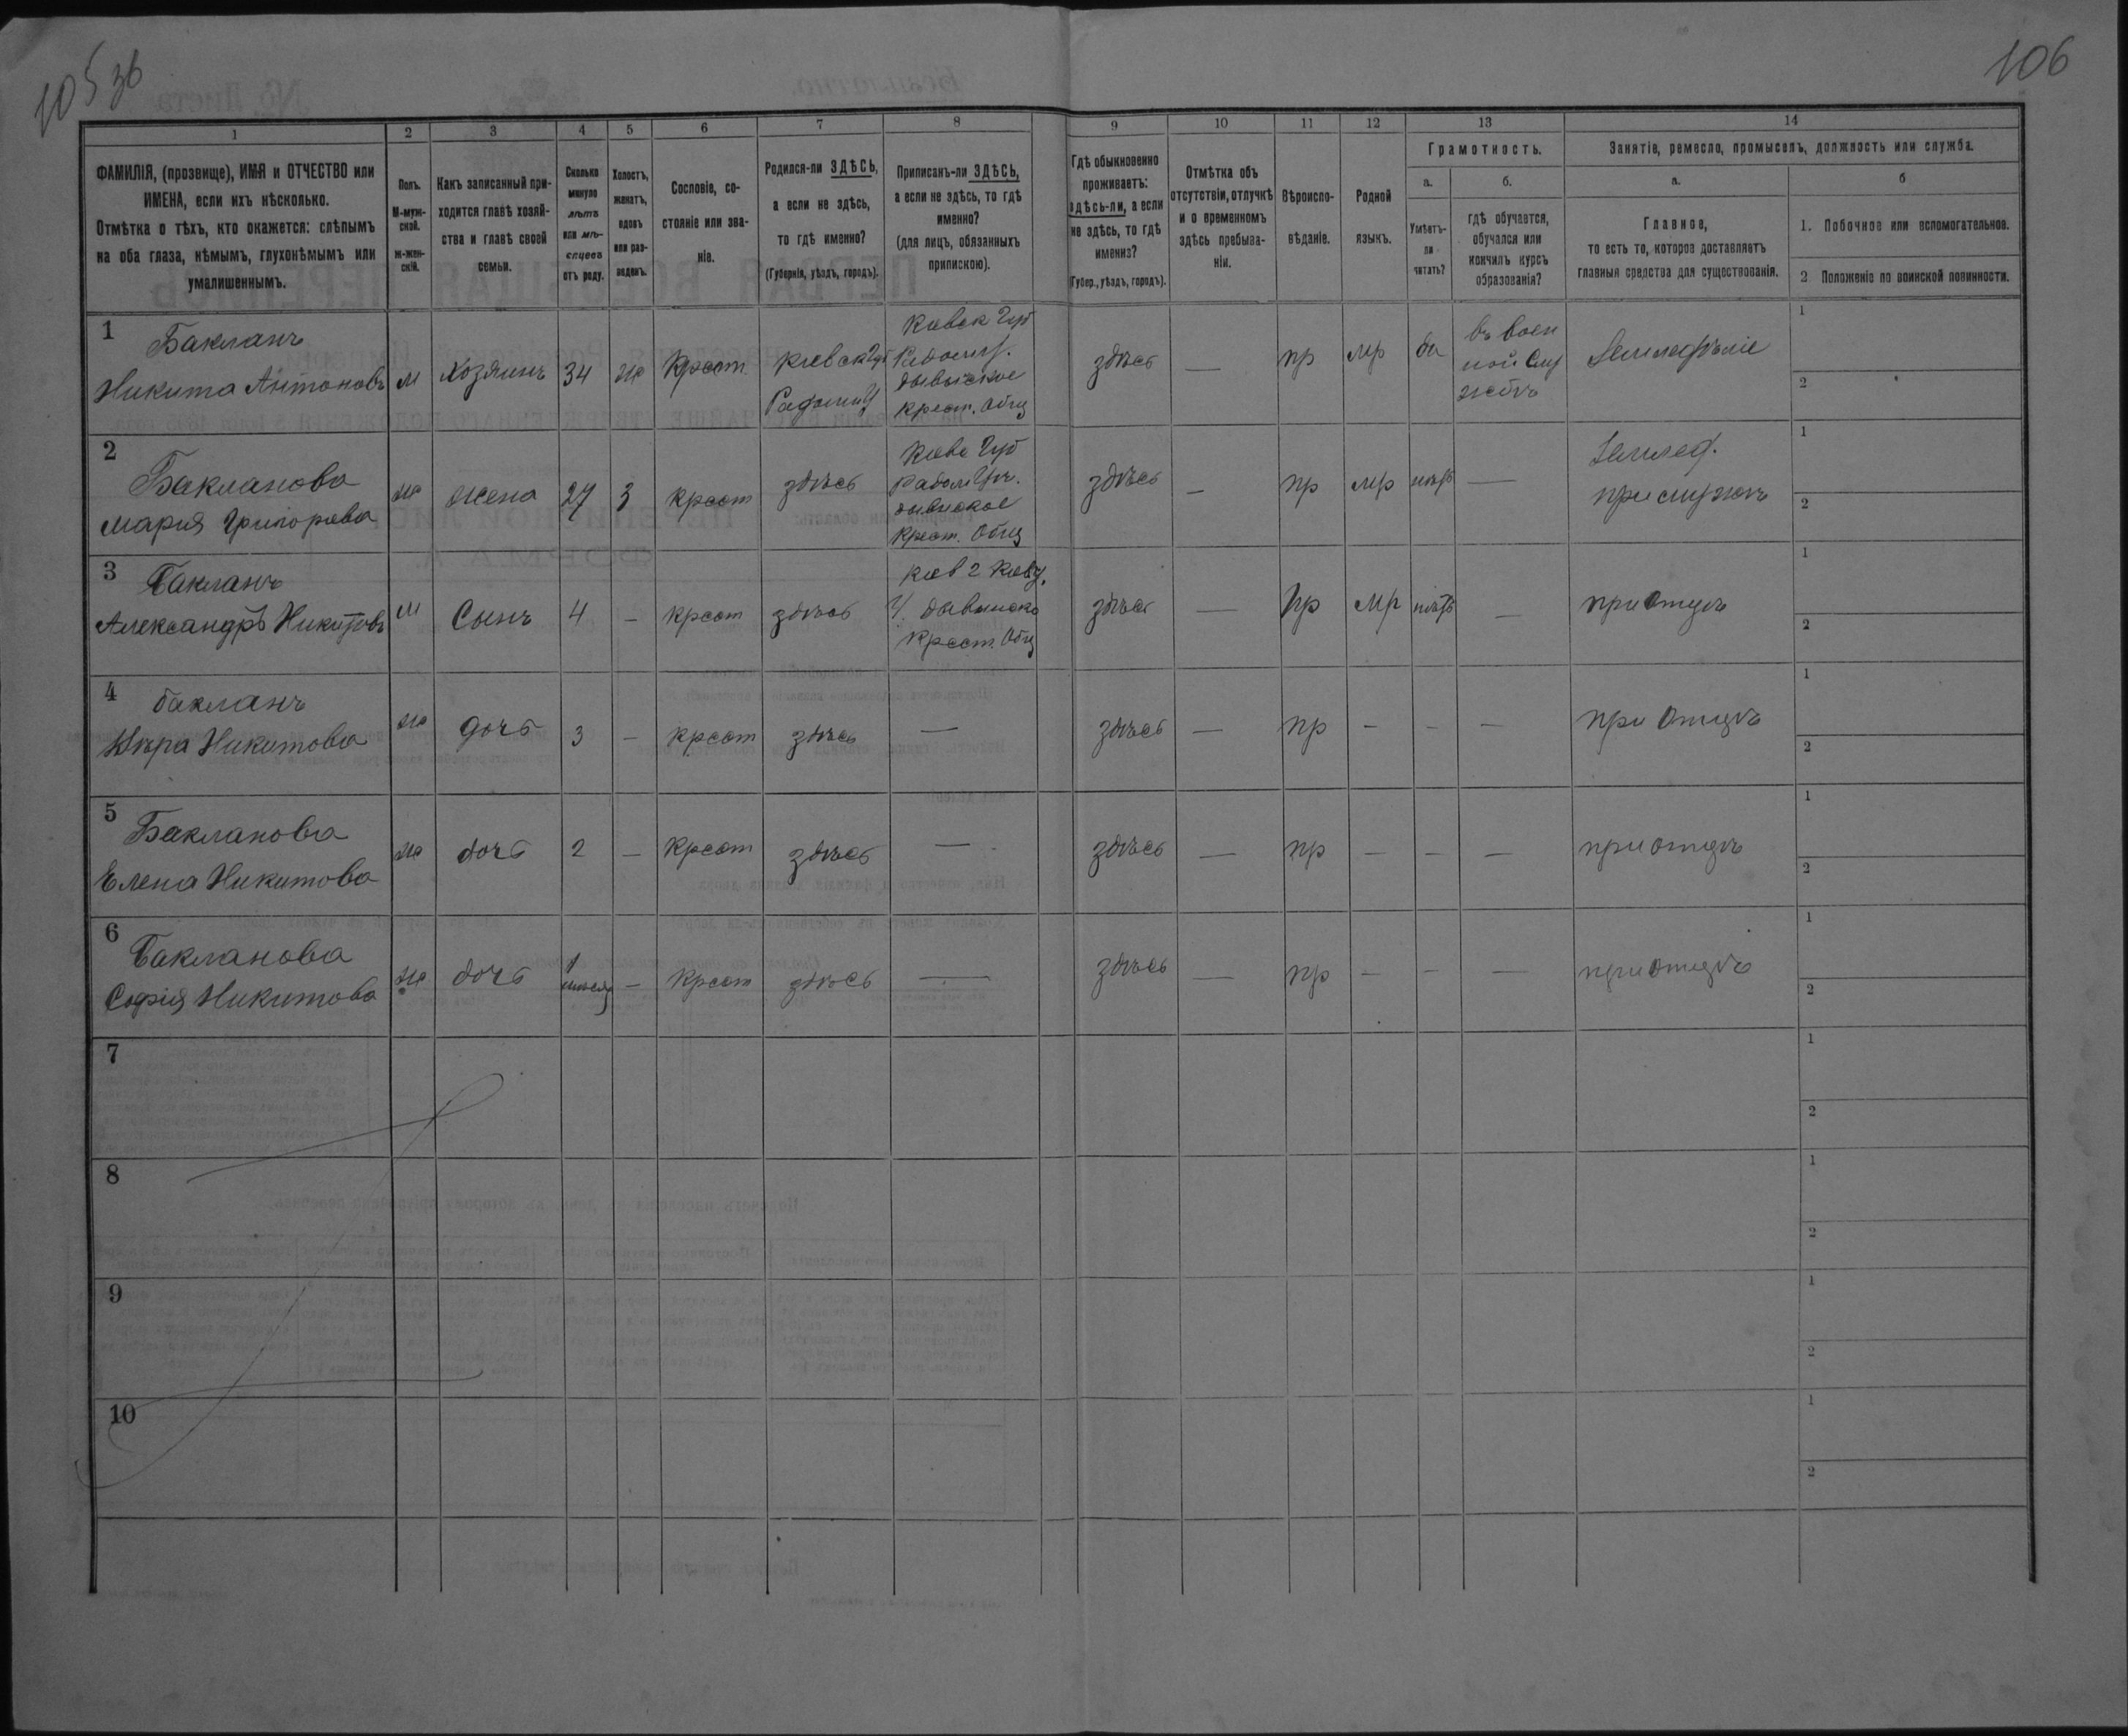 105 об
106
1
2
3
4
5
6
7
8
9
10
11
12
13
14
ФАМИЛІЯ, (прозвище), ИМЯ и ОТЧЕСТВО или
ИМЕНА, если ихъ нѣсколько.
Отмѣтка о тѣхъ, кто окажется: слѣпымъ
на оба глаза, нѣмымъ, глухонѣмымъ или
умалишеннымъ.
Полъ.
М-муж-
ской.
ж-жен-
скій.
Какъ записанный при-
ходится главѣ хозяй-
ства и главѣ своей
семьи.
Сколько
минуло
лѣтъ
или мѣ-
сяцевъ
отъ роду.
Холостъ,
женатъ,
вдовъ
или раз-
веденъ.
Сословіе, со-
стояніе или зва-
ніе.
Родился-ли ЗДѢСЬ,
а если не здѣсь,
то гдѣ именно?
(Губернія, уѣздъ, городъ).
Приписанъ-ли ЗДѢСЬ,
а если не здѣсь, то гдѣ
именно?
(для лицъ, обязанныхъ
припискою).
Гдѣ обыкновенно
проживаетъ:
здѣсь-ли, а если
не здѣсь, то гдѣ
именно?
(Губер., уѣздъ, городъ).
Отмѣтка объ
отсутствіи, отлучкѣ
и о временномъ
здѣсь пребыва-
ніи.
Вѣроиспо-
вѣданіе.
Родной
языкъ.
Грамотность.
а.
Умѣетъ-
ли
читать?
б.
гдѣ обучается,
обучался или
кончилъ курсъ
образованія?
Занятіе, ремесло, промыселъ, должность или служба.
а.
Главное,
то есть то, которое доставляетъ
главныя средства для существованія.
б
1. Побочное или вспомогательное.
2 Положеніе по воинской повинности.
1
Бакланъ
Никита Антоновъ
м
Хозяинъ
34
ж
Крест
Киевск Губ
Радомыс
Киевск Губ
Радомы.
крест. Общ
здѣсь
—
пр
мр
да
въ воен
ной слу
жбѣ
Земледѣліе
1
2
2
Бакланова
Мария Григорьева
ж
жена
27
З
крест
здѣсь
Киев Губ
Крест. Общ
здѣсь
—
пр
мр
нѣтъ
—
Землед.
при мужѣ
1
2
3
Бакланъ
Александръ Никитовъ
м
Сынъ
4
—
крест
здѣсь
Крест. Общ
здѣсь
—
пр
мр
нѣтъ
—
при отцѣ
1
2
4
бакланъ
Никитова
ж
дочь
3
—
крест
здѣсь
—
здѣсь
—
пр
—
—
—
при отцѣ
1
2
5
Бакланова
Елена Никитова
ж
дочь
2
—
крест
здѣсь
—
здѣсь
—
пр
—
—
—
при отцѣ
1
2
6
Бакланова
Софія Никитова
ж
дочь
1
мѣсяц
—
крест
здѣсь
—
здѣсь
—
пр
—
—
—
при отцѣ
1
2
7
1
2
8
1
2
9
1
2
10
1
2